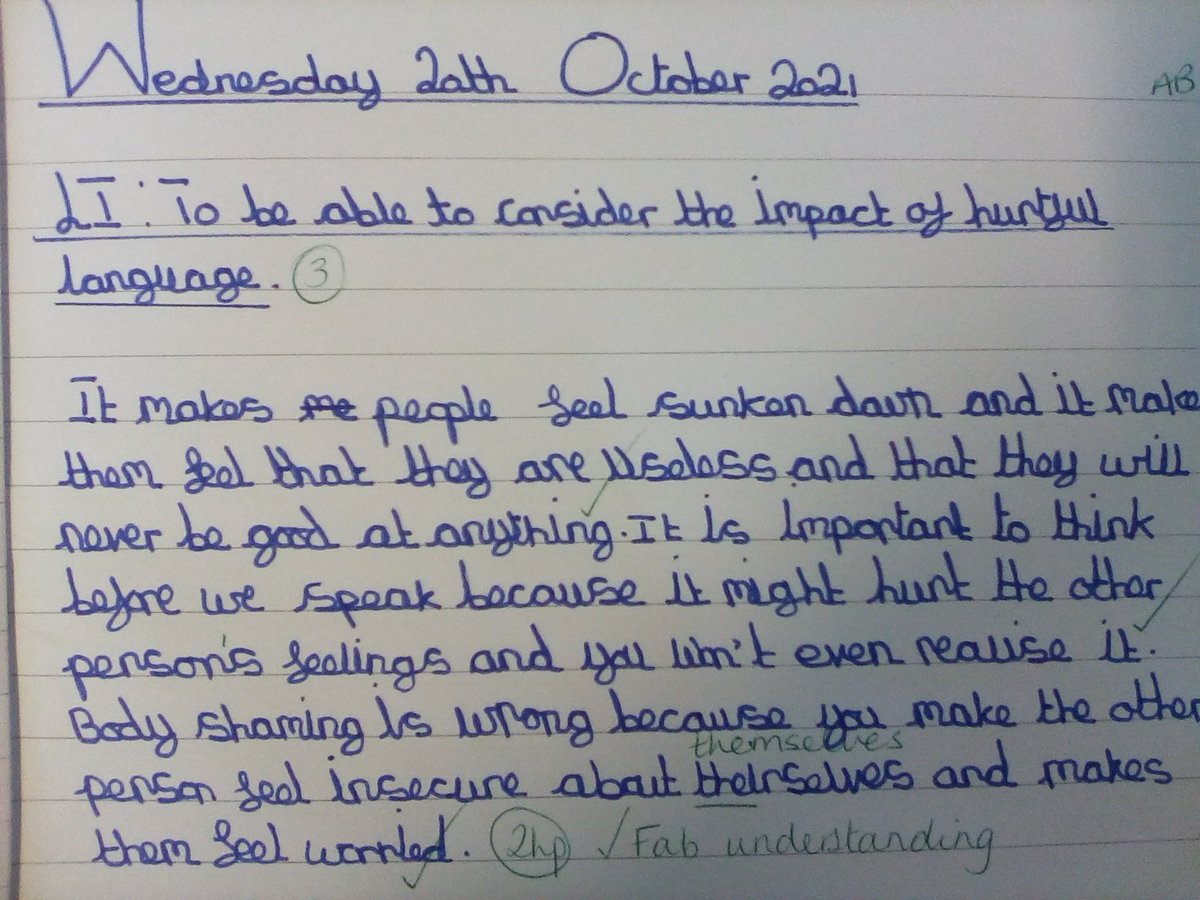 Wednesday 20th October 2021
AB
LI: To be able to consider the impact of hurtful
language. 3
It makes me people feel sunken down and it make
them feel that they are useless and that they will
never be good at anything. It is important to think
before we speak because it might hurt the other
person's feelings and you won't even realise it.
Body shaming is wrong because you make the other
themselves
person feel insecure about theirselves and makes
them feel worried. 2hp ✓ Fab understanding